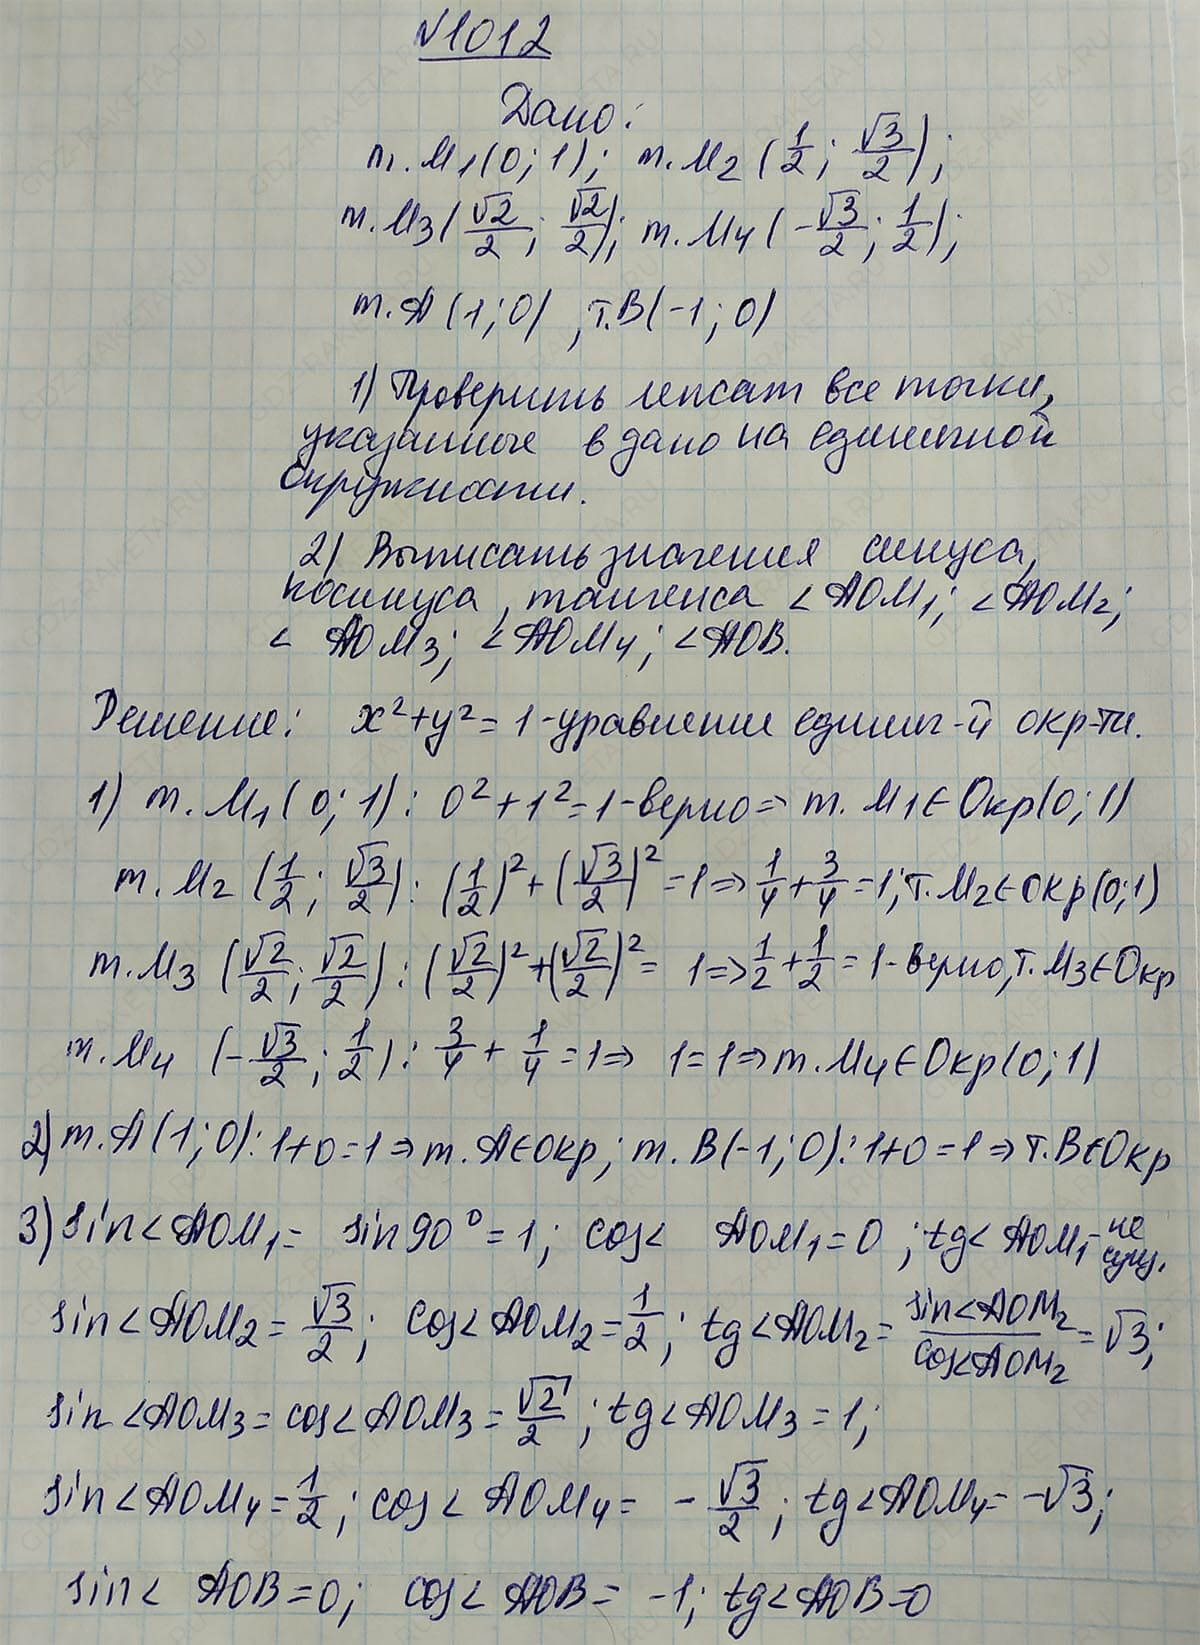 №1012
Дано:
т. M1(0; 1); т. M2 (1/2; √3/2);
т. M3(√2/2; √2/2); т. M4(-√3/2; 1/2);
т. A(1; 0), т. B(-1; 0)
1) Проверить лежат все точки,
указанные в дано на единичной
окружности.
2) Выписать значения синуса,
косинуса, тангенса <AOM1; <AOM2;
< AOM3; <AOM4; <AOB.
Решение: x²+y²=1-уравнение единич-й окр-ти.
1) т. M1(0; 1): 0²+1²=1-верно=> т. M1∈Окр(0; 1)
т. M2 (1/2; √3/2): (1/2)²+(√3/2)²=1=>1/4+3/4=1; т. M2∈Окр(0;1)
т. M3 (√2/2; √2/2): (√2/2)²+(√2/2)²= 1=>1/2+1/2=1-верно, т. M3∈Окр
т. M4 (-√3/2; 1/2): 3/4+1/4=1=> 1=1=>т. M4∈Окр(0; 1)
2) т. A(1; 0): 1+0=1=>т. A∈Окр; т. B(-1; 0): 1+0=1=>т. B∈Окр
3) sin<AOM1= sin90°=1; cos< AOM1=0; tg<AOM1-не сущ.
sin<AOM2=√3/2; cos<AOM2=1/2; tg<AOM2=sin<AOM2/cos<AOM2=√3;
sin<AOM3=cos<AOM3=√2/2; tg<AOM3=1;
sin<AOM4=1/2; cos<AOM4= -√3/2; tg<AOM4=-√3;
sin< AOB=0; cos<AOB= -1; tg<AOB=0